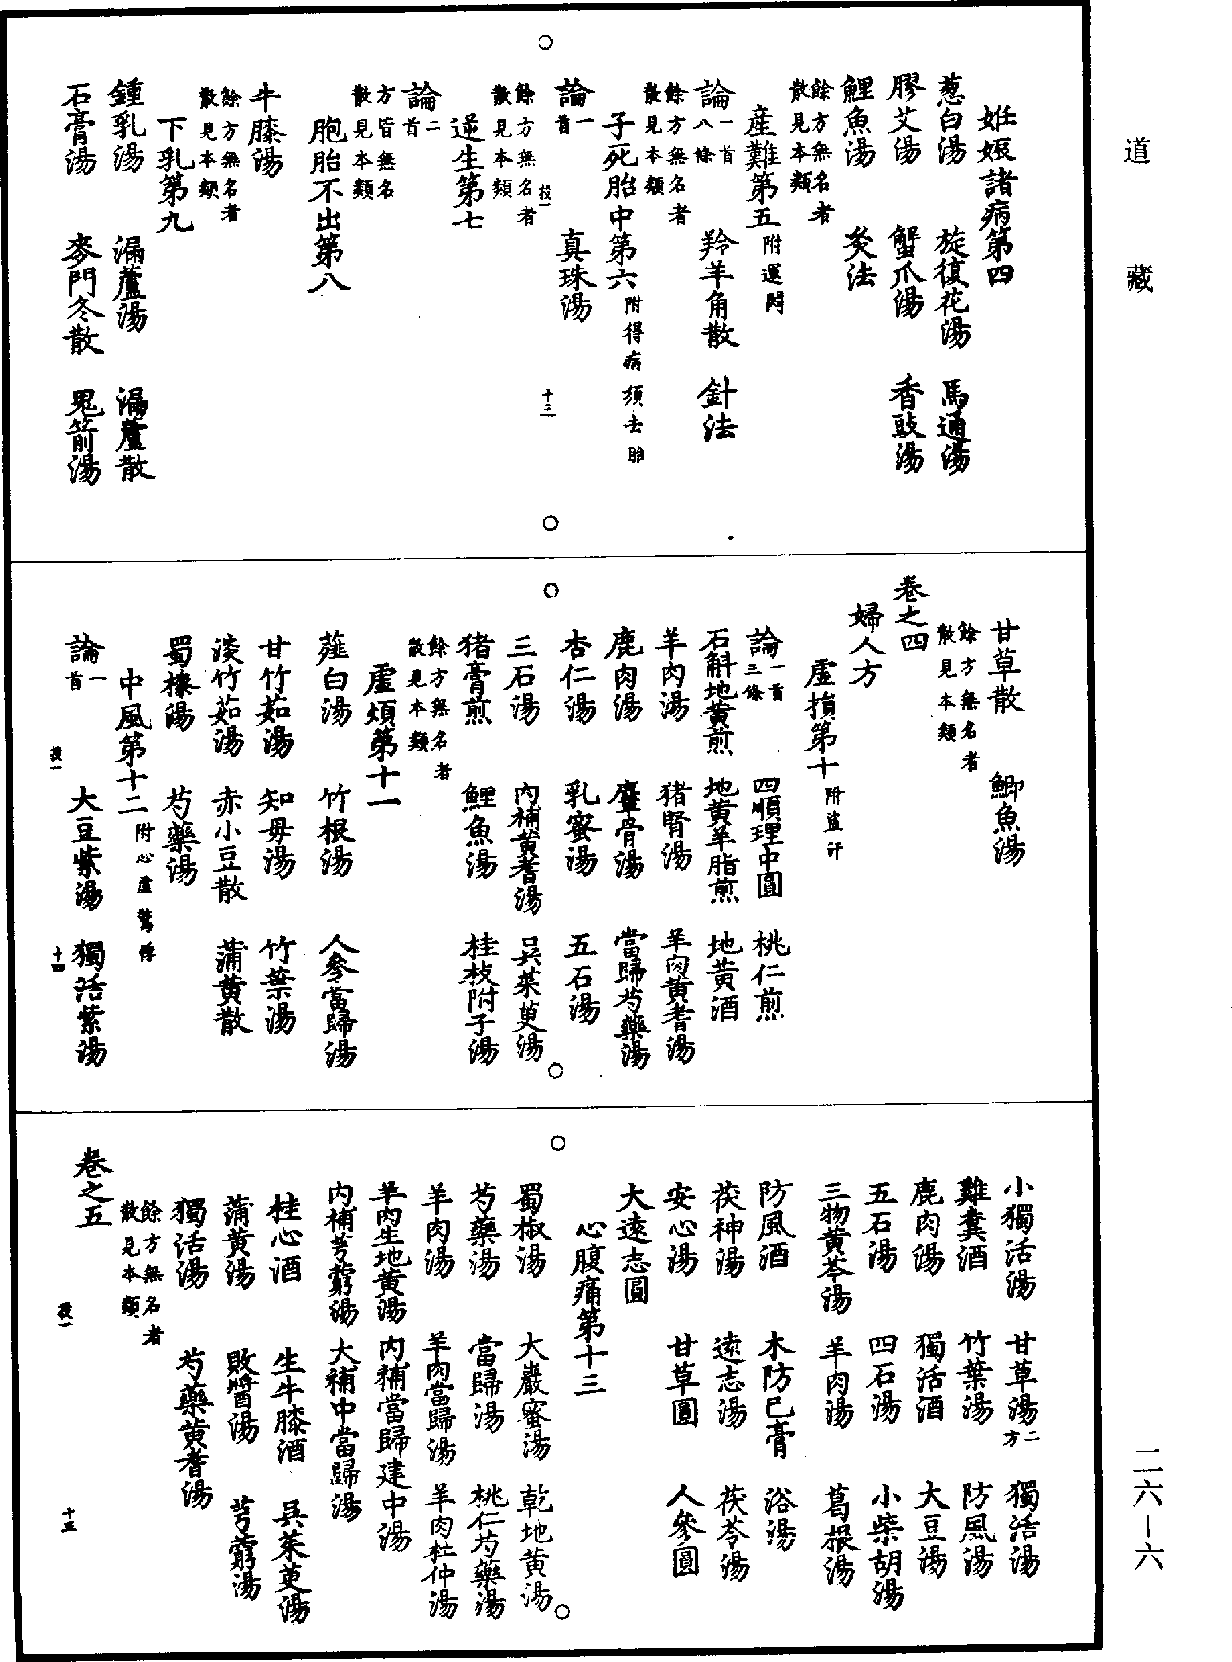 道藏
妊娠諸病第四
葱白湯　旋復花湯　馬通湯
膠艾湯　蟹爪湯　香豉湯
鯉魚湯　灸法
餘方無名者
散見本類
產難第五附運悶
論一首八條　羚羊角散　針法
餘方無名者
散見本類
子死胎中第六附得病須去胎
論一首　真珠湯
投一　十三
餘方無名者
散見本類
逆生第七
論二首
方皆無名
散見本類
胞胎不出第八
牛膝湯
餘方無名者
散見本類
下乳第九
鍾乳湯　漏蘆湯　漏蘆散
石膏湯　麥門冬散　鬼箭湯
甘草散　鯽魚湯
餘方無名者
散見本類
卷之四
婦人方
虛損第十附盜汗
論一首三條　四順理中圓　桃仁煎
石斛地黃煎　地黃羊脂煎　地黃酒
羊肉湯　猪腎湯　羊肉黃耆湯
鹿肉湯　麞骨湯　當歸芍藥湯
杏仁湯　乳蜜湯　五石湯
三石湯　內補黃耆湯　吳茱萸湯
猪膏煎　鯉魚湯　桂枝附子湯
餘方無名者
散見本類
虛煩第十一
薤白湯　竹根湯　人參當歸湯
甘竹茹湯　知母湯　竹葉湯
淡竹茹湯　赤小豆散　蒲黃散
蜀椒湯　芍藥湯
中風第十二附心虛驚悸
論一首　大豆紫湯　獨活紫湯
投一　十四
小獨活湯　甘草湯二方　獨活湯
雞糞酒　竹葉湯　防風湯
鹿肉湯　獨活酒　大豆湯
五石湯　四石湯　小柴胡湯
三物黃芩湯　羊肉湯　葛根湯
防風酒　木防已膏　浴湯
茯神湯　遠志湯　茯苓湯
安心湯　甘草圓　人參圓
大遠志圓
心腹痛第十三
蜀椒湯　大巖蜜湯　乾地黃湯
芍藥湯　當歸湯　桃仁芍藥湯
羊肉湯　羊肉當歸湯　羊肉杜仲湯
羊肉生地黃湯　內補當歸建中湯
內補芎藭湯　大補中當歸湯
桂心酒　生牛膝酒　吳茱萸湯
蒲黃湯　敗醬湯　芎藭湯
獨活湯　芍藥黃耆湯
餘方無名者
散見本類
卷之五
投一　十五
二六—六